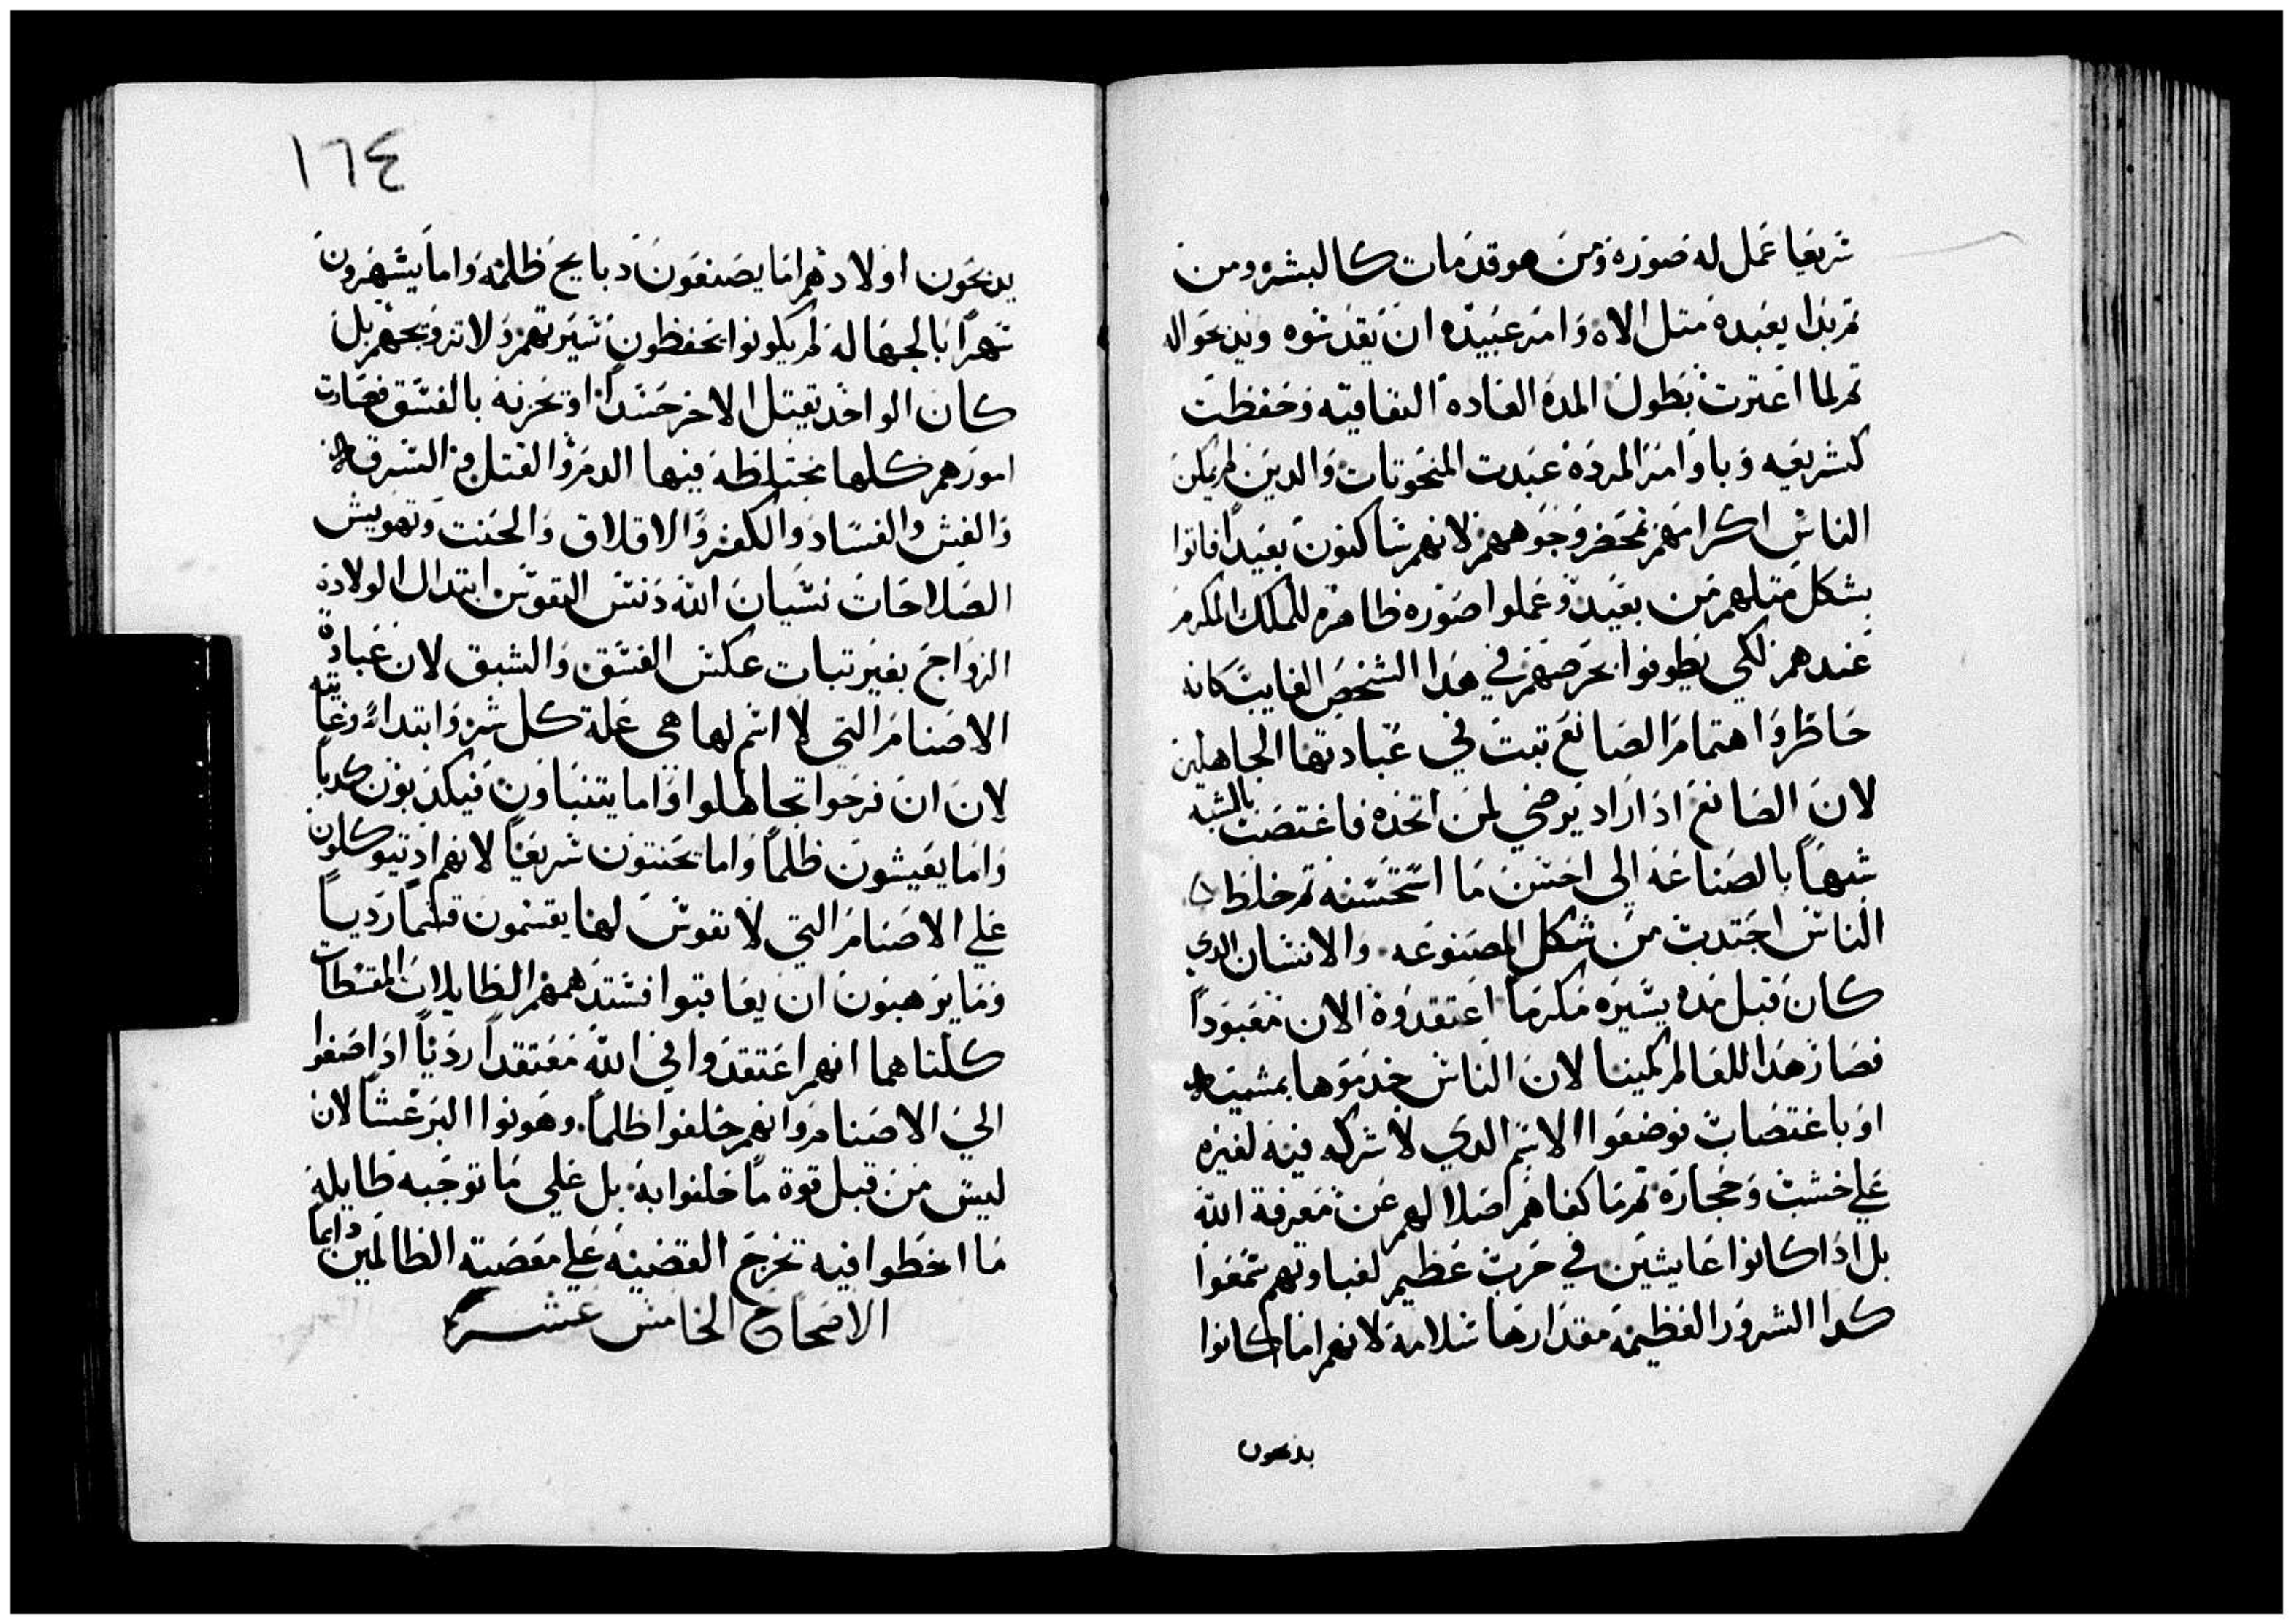 شريعيا عمل له صوره ومن هو قد مات كالبشر ومن
تم بدا يعبده متل الاه وامر عبيده ان يقدسوه ويدبحوا له
تم لما اعترت بطول المده العاده النفاقيه وحفظت
كشريعه وباوامر المرده عبدت المنحوتات والدين لم يكن
الناس اكرامهم بمحضر وجوههم لانهم ساكنون بعيدا فاتوا
بشكل متلهم من بعيد وعملوا صوره ظاهره للملك المكرم
عندهم لكي يطوفوا بحرصهم في هدا الشخص الغايب كانه
حاظر واهتمام الصانع تبت في عبادتها الجاهلين
لان الصانع ادا اراد يرضي لمن اتخده فاغتصب بالشبه
شبهاً بالصناعه الي احسن ما استحسنه تم خلظ
الناس اجتدبت من شكل المصنوعه والانسان الدي
كان قبل مده يسيره مكرما اعتقدوه الان معبوداً
فصار هدا للعالم كمينا لان الناس خدموها بمشيه
او باغتصاب فوضعوا الاسم الدي لا شركه فيه لغيره
علي خشب وحجاره تم ما كفاهم ضلالهم عن معرفة الله
بل ادا كانوا عايشين في حرب عظيم لغباوتهم سمعوا
كدا الشرور العظيمه مقدارها سلامه لانهم اما كانوا
يدبحون
١٦٤
يدبحون اولادهم اما يصنعون دبايح ظلمه واما يسهرون
سهرا بالجهاله لم يكونوا يحفظون سيرتهم ولا تزويجهم بل
كان الواحد يقتل الاخر حسداً او يحزنه بالفسق فصارت
امورهم كلها مختلظه فيها الدم والقتل والسرقه
والغش والفساد والكفر والاقلاق والحنت وتهويش
الصلاحات نسيان الله دنس النفوس ابتدال الولاده
الزواج بغير تبات عكس الفسق والشبق لان عبادة
الاصنام التي لا اسم لها هي علة كل شر وابتداه وغايته
لان ان فرحوا تجاهلوا واما يتنباون فيكدبون كدباً
واما يعيشون ظلماً واما يحنتون شريعيا لانهم اد يتوكلون
علي الاصنام التي لا نفوس لها يقسمون قسماً ردياً
وما يرهبون ان يعاقبوا فستدهمهم الظايلات المقسطات
كلتاهما انهم اعتقدوا في الله معتقداً ردياً اد اصغوا
الي الاصنام وانهم حلفوا ظلماً وهونوا البر غشا لان
ليس من قبل قوة ما حلفوا به بل علي ما توجبه ظايلة
ما اخطوا فيه تخرج القضيه علي معصية الظالمين دايما
الاصحاح الخامس عشر